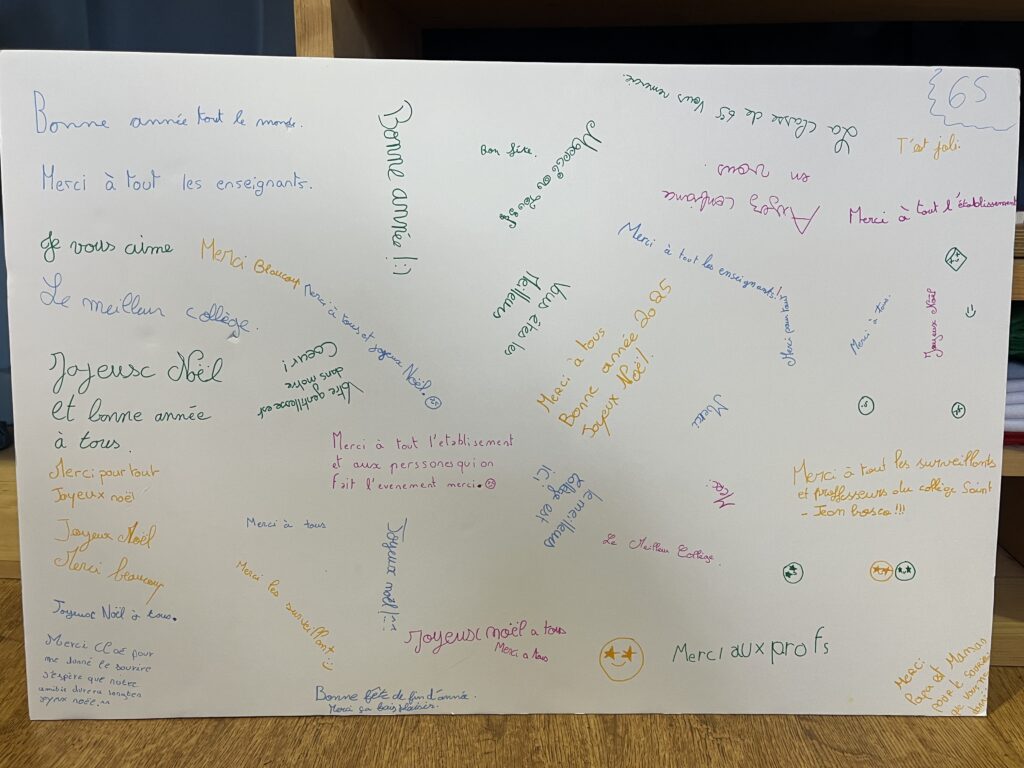 Bonne année tout le monde.
Merci à tout les enseignants.
Je vous aime
Le meilleur collège.
Joyeux Noël
et bonne année
à tous.
Merci pour tout
Joyeux noël
Joyeux Noël
Merci beaucoup
Joyeux Noël à tous.
Merci Cloé pour
me donné le sourire
J'espère que notre
amitié durera
joyeux noël.^^
Merci Beaucoup
merci à tous et joyeux Noël.
Votre gentillesse est
dans notre
Coeur!
Bonne année !:)
Bon fête.
Vous êtes les
Meilleurs
La classe de 6S vous remercie.
Ayez confiance
en vous
6S
T'est joli.
Merci à tout l'établissement
Merci à tout les enseignants!
Merci pour tout
Merci à tous.
Joyeux Noël
Merci à tous
Bonne année 2025
Joyeux Noël!
Merci
Merci à tout l'établissement
et aux perssones qui on
fait l'evenement merci.
Merci à tous
Merci les surveillant
Joyeux noël!
le meilleurs
collège est
ici
Merci
Le Meilleur Collège.
Merci à tout les surveillants
et proffesseurs du collège Saint
- Jean bosco!!!
Joyeux noël a tous
Merci a tous
Merci aux profs
Bonne fête de fin d'année.
Merci
Papa et Maman
pour le sourire
que vous me